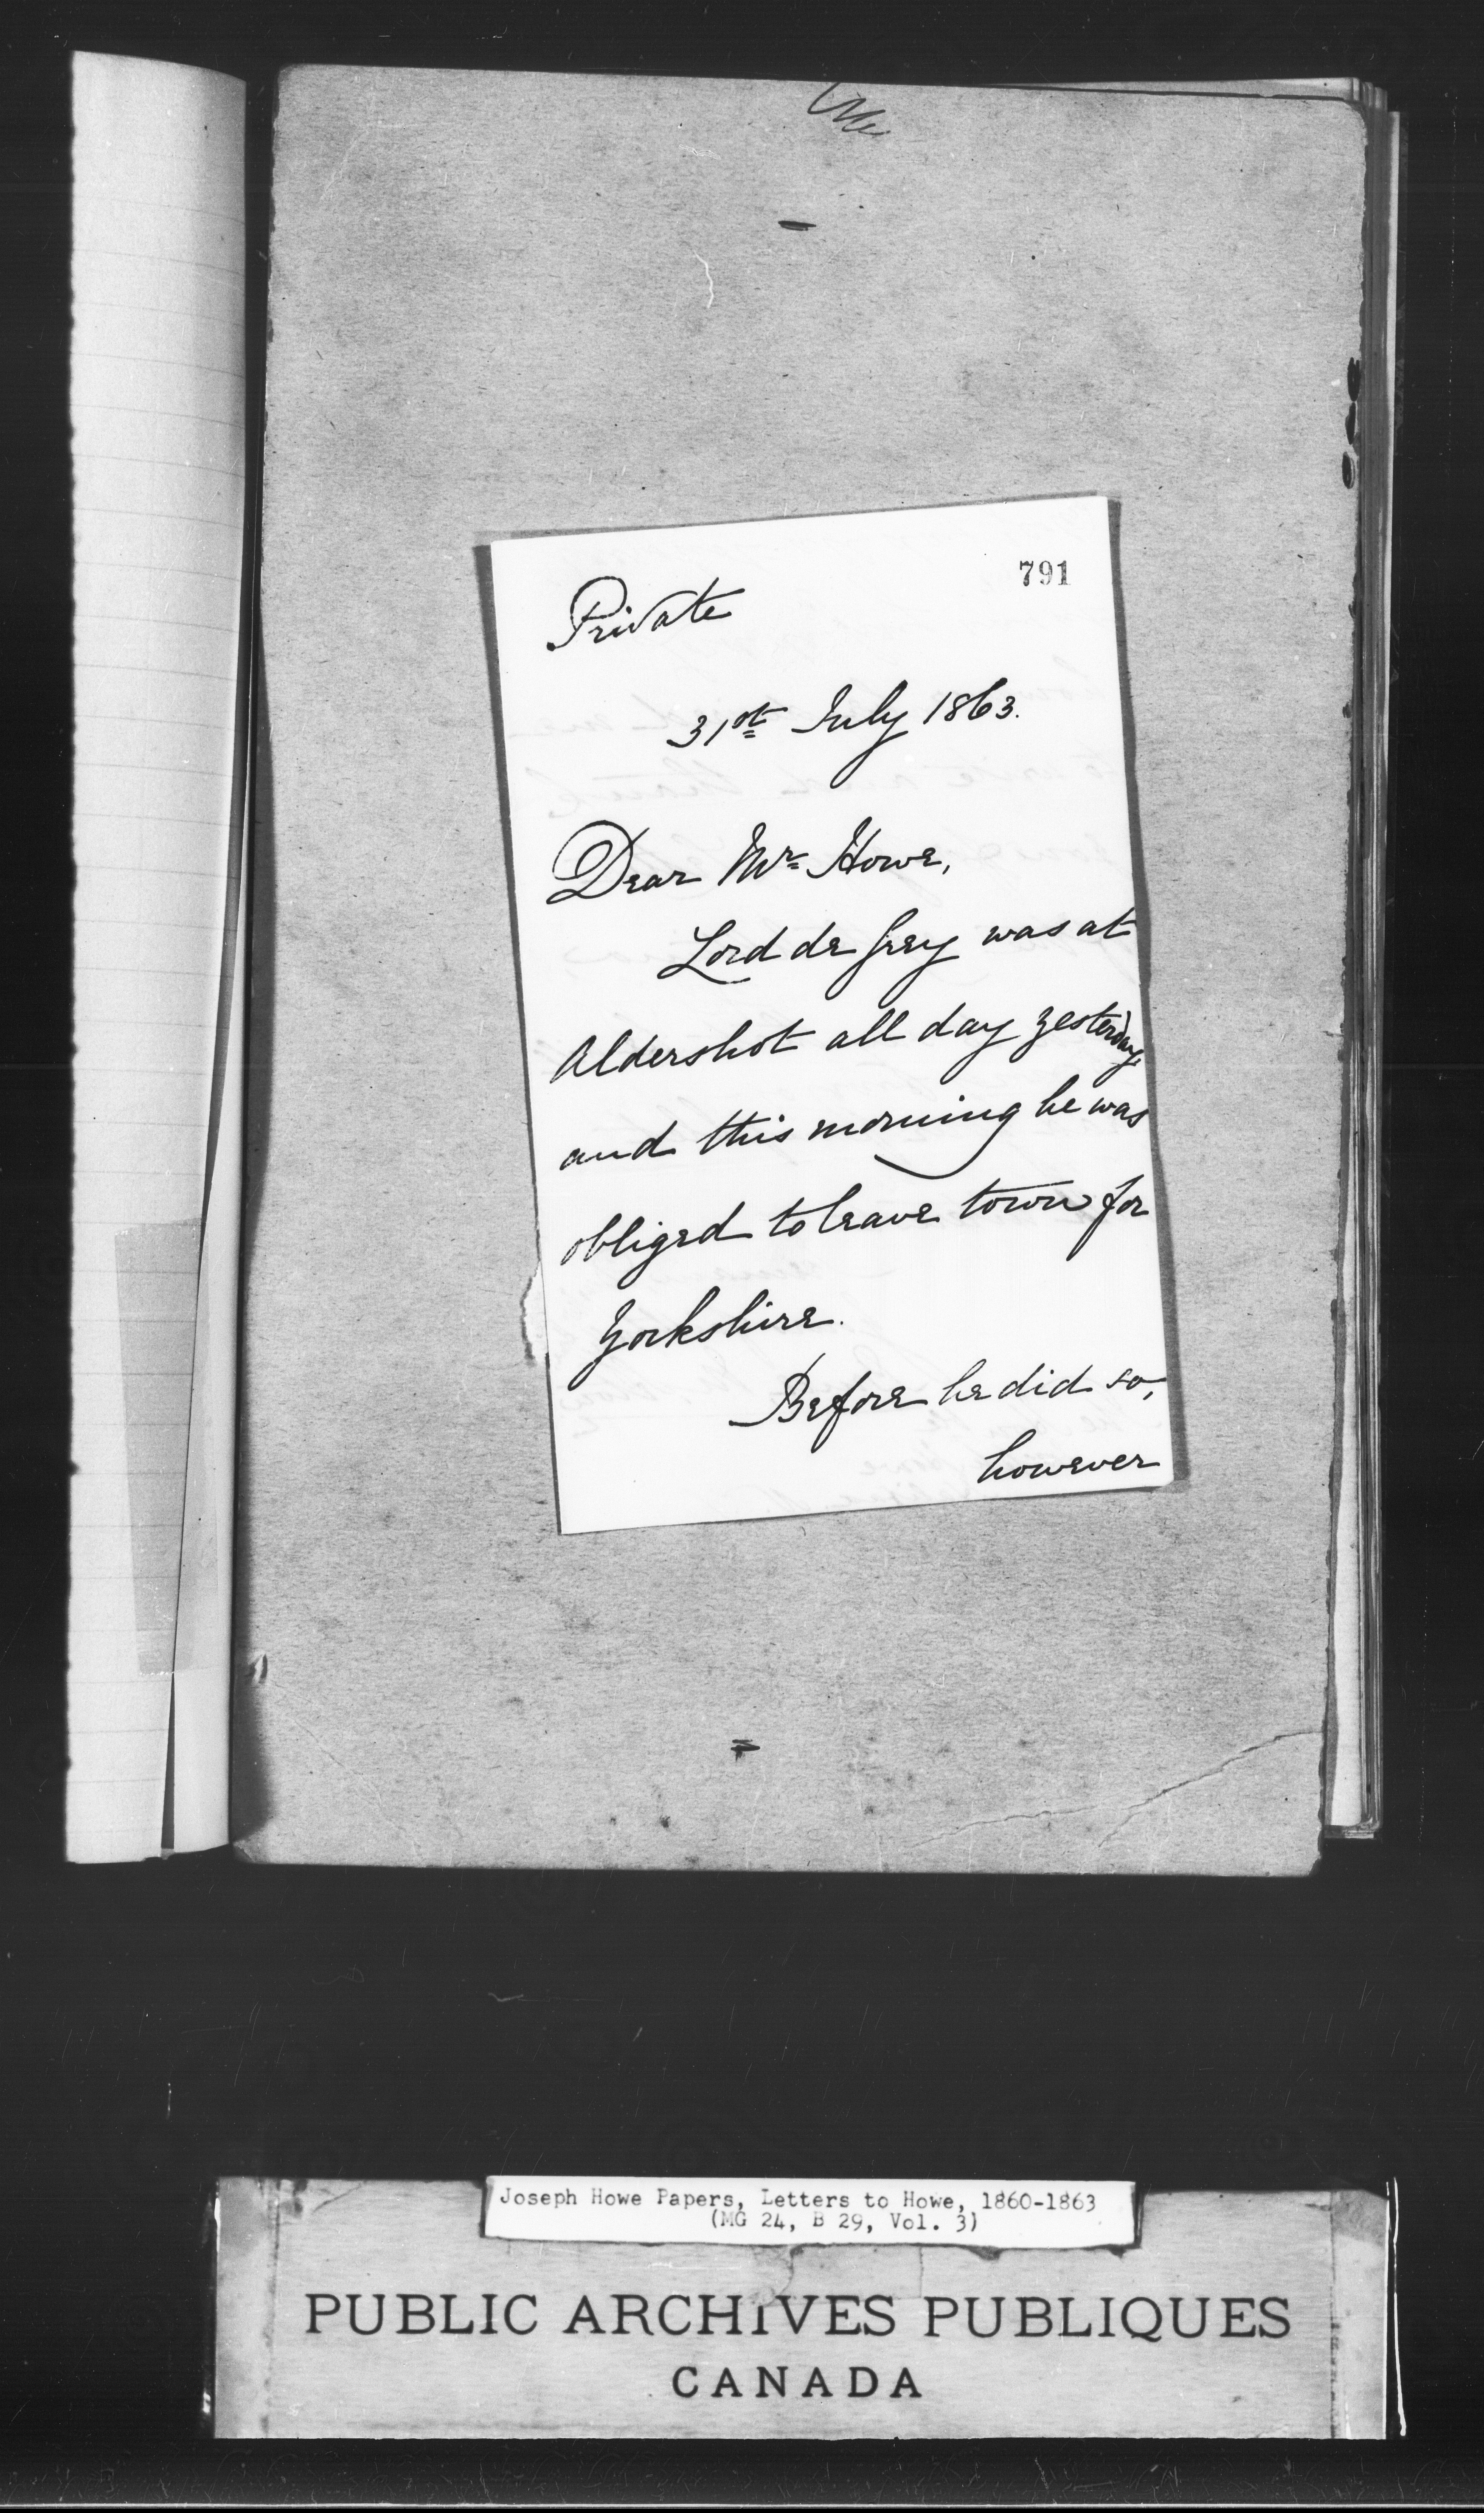 791
Private
31st July 1863.
Dear Mr Howe,
Lord de Grey was at
Aldershot all day yesterday,
and this morning he was
obliged to leave town for
Yorkshire.
Before he did so,
however
Joseph Howe Papers, Letters to Howe, 1860-1863
(MG 24, B 29, Vol. 3)
PUBLIC ARCHIVES PUBLIQUES
CANADA